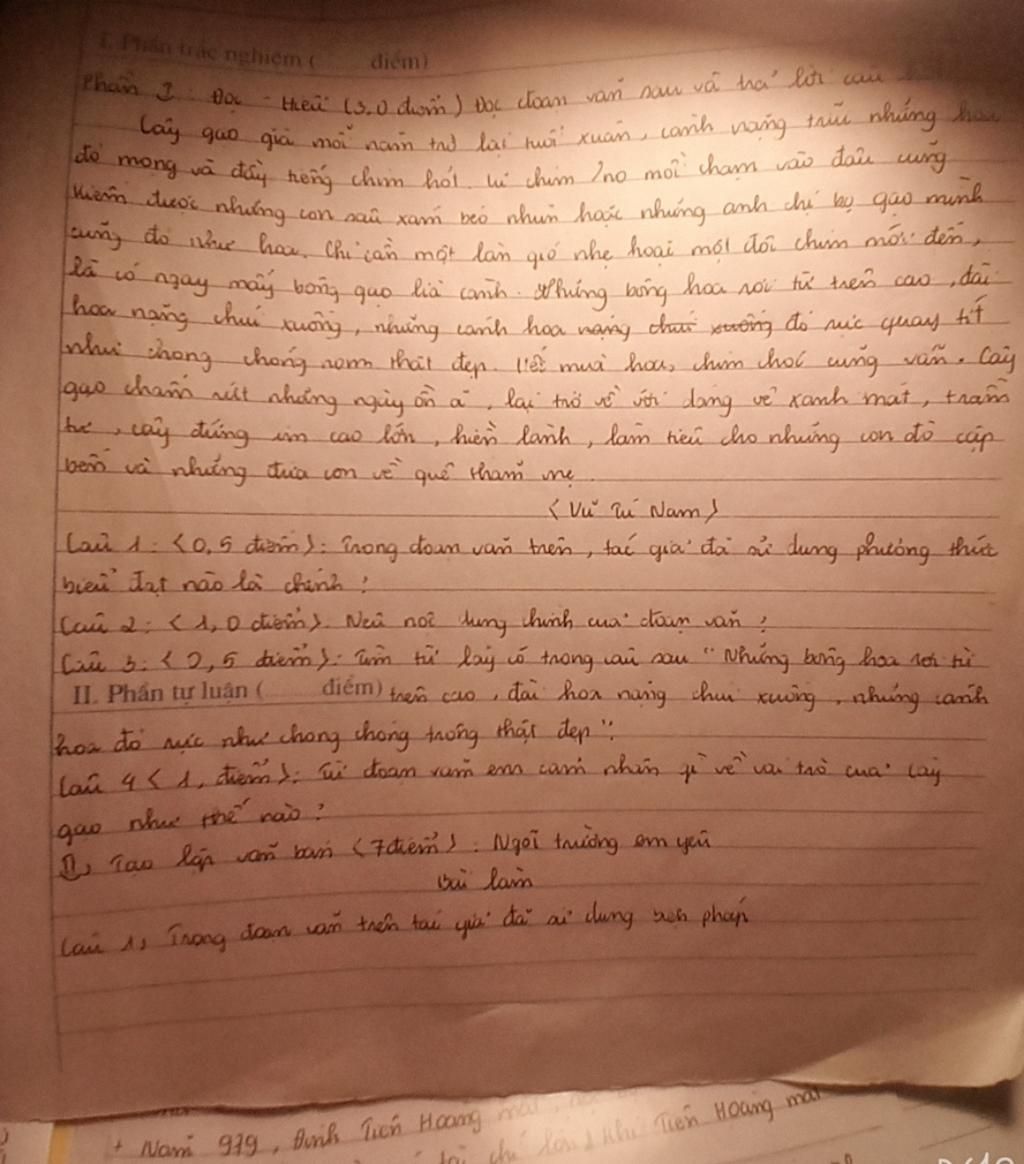 I. Phần trắc nghiệm ( điểm)
Phần I: Đọc - Hiểu (3,0 điểm) Đọc đoạn văn sau và trả lời câu
Cây gạo già mỗi năm trở lại tuổi xuân, cành nặng trĩu những hoa
đỏ mọng và đầy tiếng chim hót. chim mỗi chạm vào đâu cũng
kiếm được những con sâu xám béo nhũn hoặc những anh chị bọ gạo mình
cũng đỏ như hoa. Chỉ cần một làn gió nhẹ hoại một đôi chim mới đến,
là có ngay mấy bông gạo lìa cành. Những bông hoa rơi từ trên cao, đài
hoa nặng chúi xuống, những cánh hoa nặng chúi xuống đỏ rực quay tít
như chong chóng thật đẹp. Hết mùa hoa, chim chóc cũng vãn. Cây
gạo chấm rứt những ngày ồn ã, lại trở về với dáng vẻ xanh mát, trầm
tư, cây đứng im cao lớn, hiền lành, làm tiêu cho những con đò cập
bến và những đứa con về quê thăm mẹ.
< Vũ Tú Nam >
Câu 1: <0,5 điểm>: Trong đoạn văn trên, tác giả đã sử dụng phương thức
biểu đạt nào là chính?
Câu 2: <1,0 điểm>. Nêu nội dung chính của đoạn văn?
Câu 3: <0,5 điểm>: Tìm từ láy có trong câu sau "Những bông hoa rơi từ
II. Phần tự luận ( điểm) trên cao, đài hoa nặng chúi xuống, những cánh
hoa đỏ rực như chong chóng trông thật đẹp":
Câu 4 <1, điểm>: Từ đoạn văn em cảm nhận gì về vai trò của cây
gạo như thế nào?
II, Tạo lập văn bản <7 điểm>: Ngôi trường em yêu
Bài làm
Câu 1, Trong đoạn văn trên tác giả đã sử dụng biện pháp
+ Năm 979, Đinh Tiên Hoàng mất,
Tiên Hoàng mất